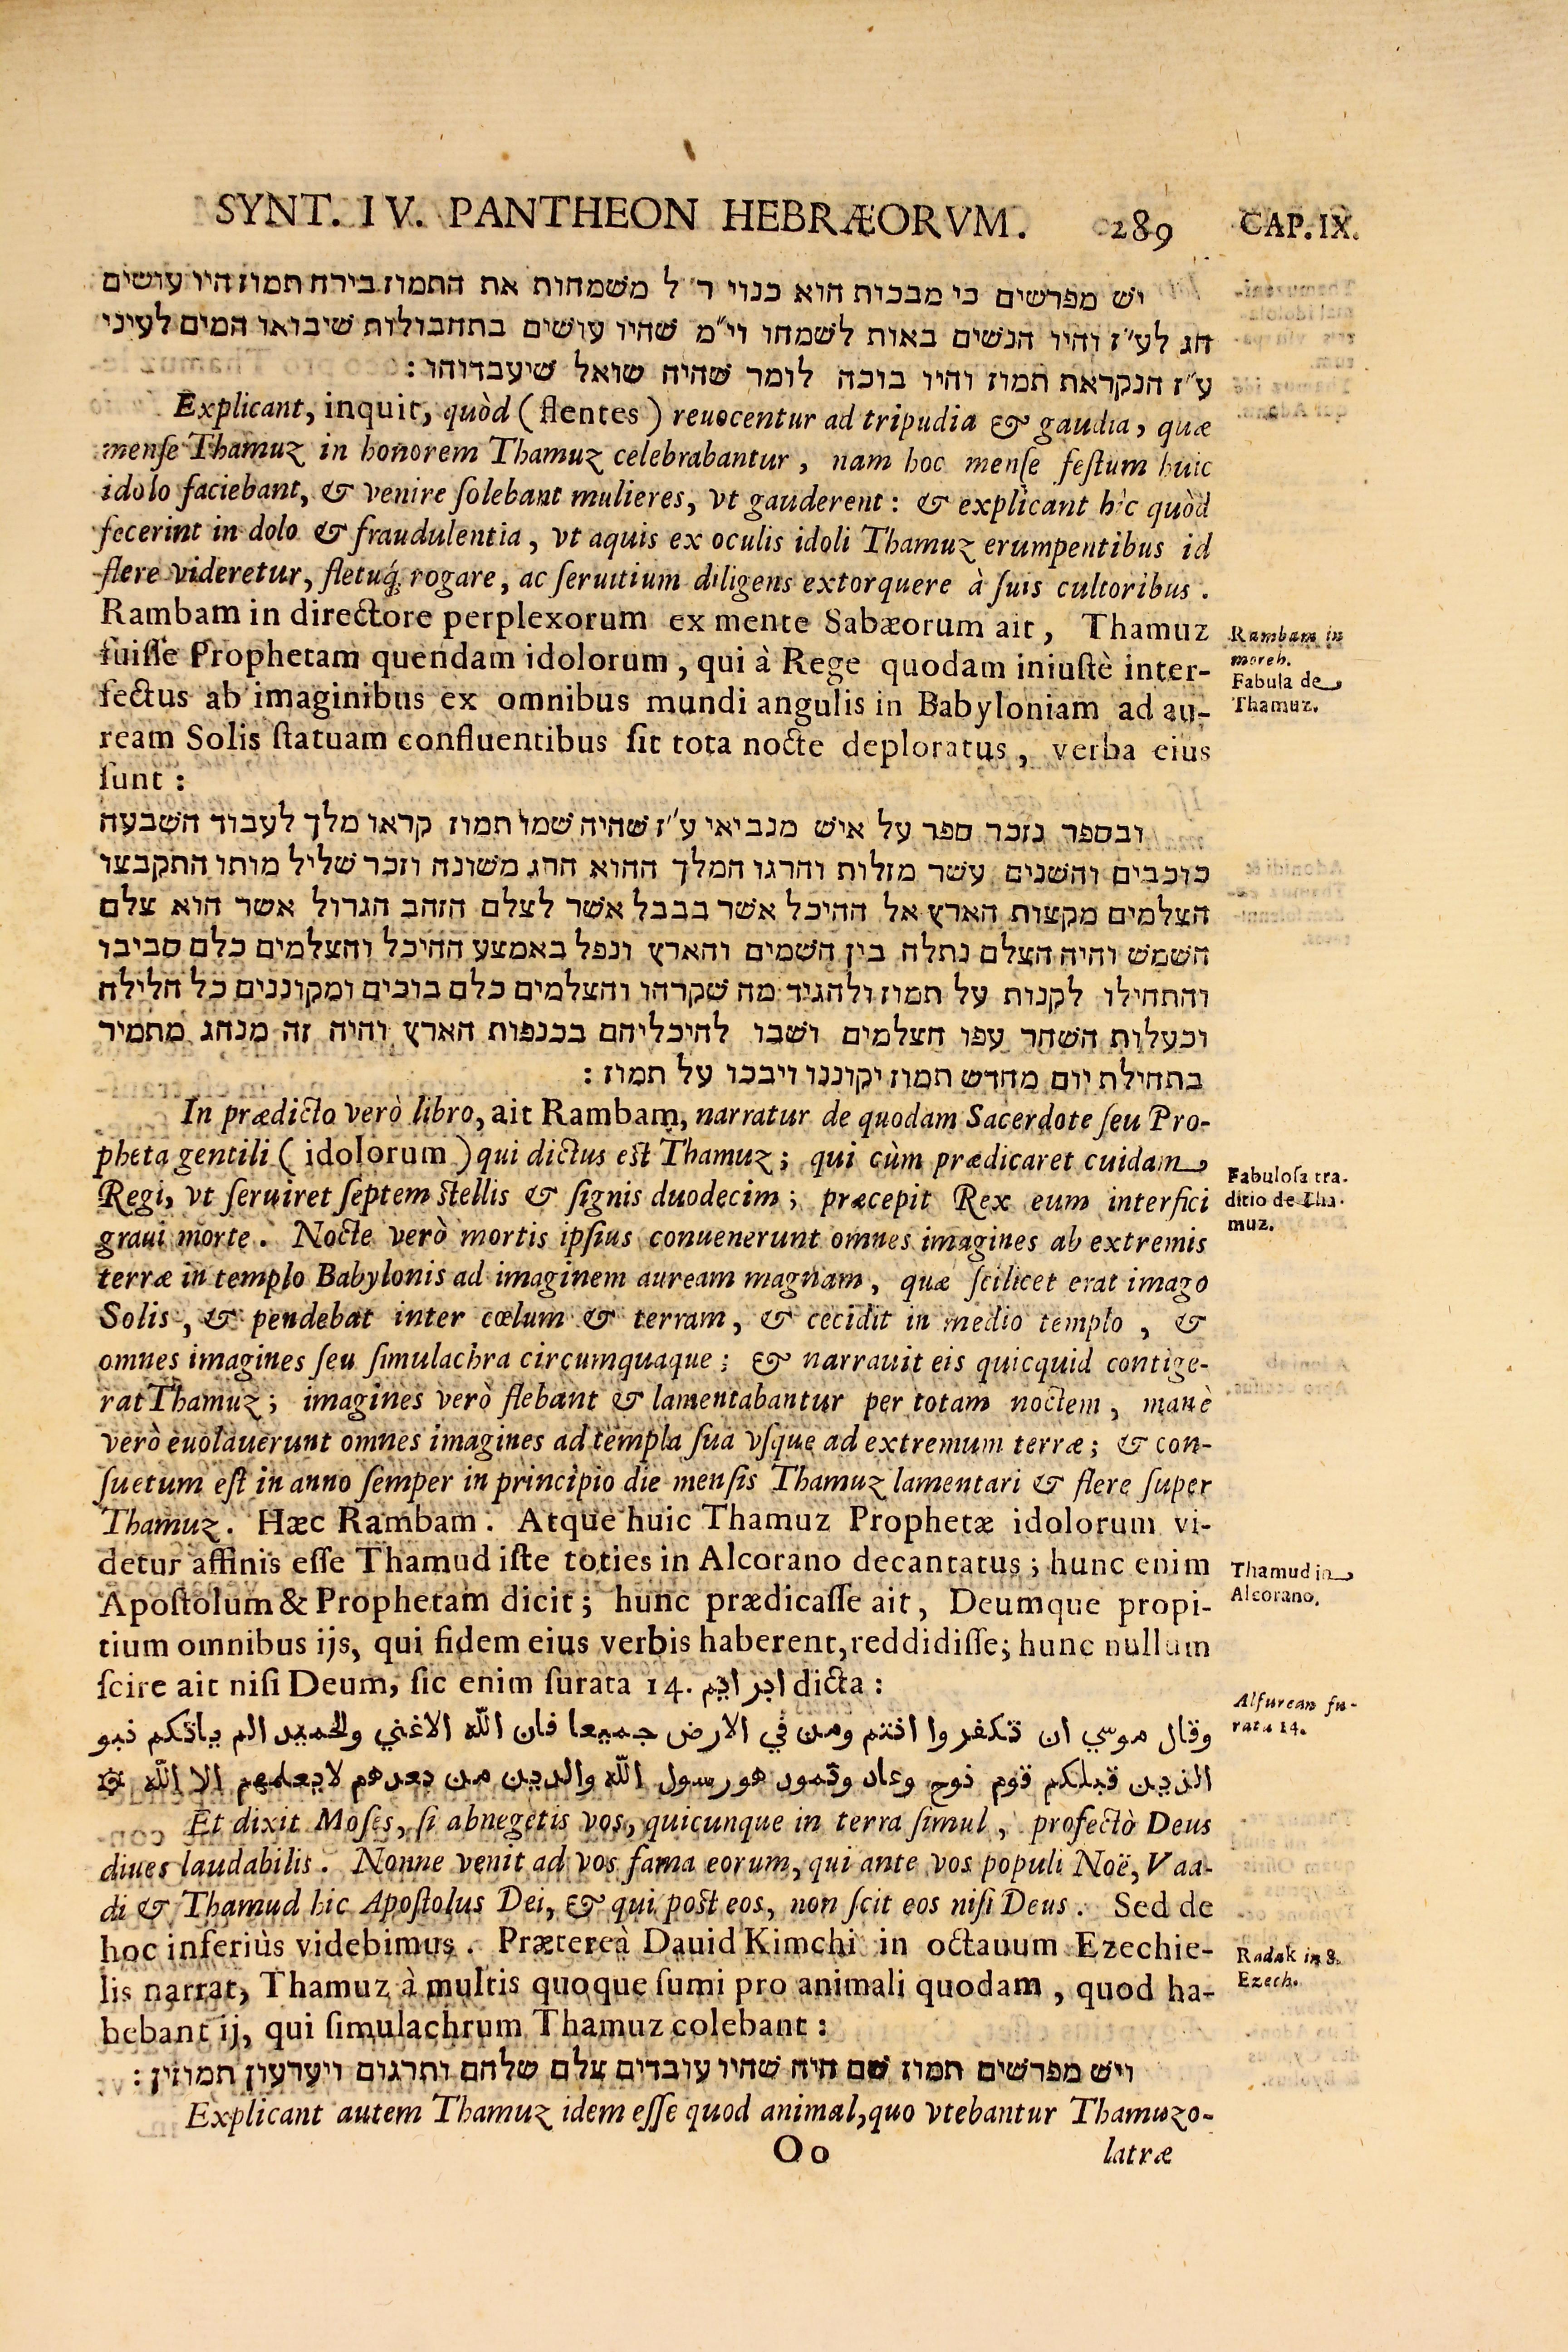 SYNT. IV. PANTHEON HEBRÆORVM. 289 CAP. IX.
יש מפרשים כי מבכות הוא כנוי ר׳ ל משמחות את התמוז בירח תמוז היו עושים
חג לע״ז והיו הנשים באות לשמחו וי״מ שהיו עושים בתחבולות שיבואו המים לעיני
ע״ז הנקראת תמוז והיו בוכה לומר שהיה שואל שיעבדוהו :
Explicant, inquit, quòd (flentes) reuocentur ad tripudia & gaudia, quæ
menſe Thamuz in honorem Thamuz celebrabantur, nam hoc menſe feſtum huic
idolo faciebant, & venire ſolebant mulieres, vt gauderent: & explicant hîc quòd
fecerint in dolo & fraudulentia, vt aquis ex oculis idoli Thamuz erumpentibus id
flere videretur, fletuq́; rogare, ac ſeruitium diligens extorquere à ſuis cultoribus.
Rambam in directore perplexorum ex mente Sabæorum ait, Thamuz
fuiſſe Prophetam quendam idolorum, qui à Rege quodam iniuſtè inter-
fectus ab imaginibus ex omnibus mundi angulis in Babyloniam ad au-
ream Solis ſtatuam confluentibus ſit tota nocte deploratus, verba eius
ſunt :
Rambam in
moreh.
Fabula de
Thamuz.
ובספר נזכר ספר על איש מנביאי ע״ז שהיה שמו תמוז קראו מלך לעבוד השבעה
כוכבים והשנים עשר מזלות והרגו המלך ההוא הרג משונה וזכר שליל מותו התקבצו
הצלמים מקצות הארץ אל ההיכל אשר בבבל אשר לצלם הזהב הגרול אשר הוא צלם
השמש והיה הצלם נתלה בין השמים והארץ ונפל באמצע ההיכל והצלמים כלם סביבו
והתחילו לקנות על תמוז ולהגיד מה שקרהו והצלמים כלם בוכים ומקוננים כל הלילה
וכעלות השחר עפו הצלמים ושבו להיכליהם בכנפות הארץ והיה זה מנהג מתמיר
בתחילת יום מחדש תמוז יקוננו ויבכו על תמוז :
In prædicto verò libro, ait Rambam, narratur de quodam Sacerdote ſeu Pro-
pheta gentili (idolorum) qui dictus eſt Thamuz; qui cùm prædicaret cuidam
Regi, vt ſeruiret ſeptem ſtellis & ſignis duodecim; præcepit Rex eum interfici
graui morte. Nocte verò mortis ipſius conuenerunt omnes imagines ab extremis
terræ in templo Babylonis ad imaginem auream magnam, quæ ſcilicet erat imago
Solis, & pendebat inter cœlum & terram, & cecidit in medio templo, &
omnes imagines ſeu ſimulachra circumquaque; & narrauit eis quicquid contige-
rat Thamuz; imagines verò flebant & lamentabantur per totam noctem, manè
verò euolauerunt omnes imagines ad templa ſua vſque ad extremum terræ; & con-
ſuetum eſt in anno ſemper in principio die menſis Thamuz lamentari & flere ſuper
Thamuz. Hæc Rambam. Atque huic Thamuz Prophetæ idolorum vi-
detur affinis eſſe Thamud iſte toties in Alcorano decantatus; hunc enim
Apoſtolum & Prophetam dicit; hunc prædicaſſe ait, Deumque propi-
tium omnibus ijs, qui fidem eius verbis haberent, reddidiſſe; hunc nullum
ſcire ait niſi Deum, ſic enim ſurata 14. ابراهيم dicta :
Fabuloſa tra.
ditio de Tha.
muz.
Thamud in
Alcorano.
Alfurcan ſu-
rata 14.
وقال موسي ان تكفروا انتم ومن في الارض جميعا فان الله الاغني والحميد الم ياتكم نبو
الذين قبلكم قوم نوح وعاد وثمود هو رسول الله والدين من بعدهم لايعلمهم الا الله
Et dixit Moſes, ſi abnegetis vos, quicunque in terra ſimul, profectò Deus
diues laudabilis. Nonne venit ad vos fama eorum, qui ante vos populi Noë, Vaa-
di & Thamud hic Apoſtolus Dei, & qui poſt eos, non ſcit eos niſi Deus. Sed de
hoc inferiùs videbimus. Prætereà Dauid Kimchi in octauum Ezechie-
lis narrat, Thamuz à multis quoque ſumi pro animali quodam, quod ha-
bebant ij, qui ſimulachrum Thamuz colebant :
Radak in 8.
Ezech.
ויש מפרשים תמוז שם חיה שהיו עובדים צלם שלהם ותרגום ויערעון תמוזין :
Explicant autem Thamuz idem eſſe quod animal, quo vtebantur Thamuzo-
Oo latræ